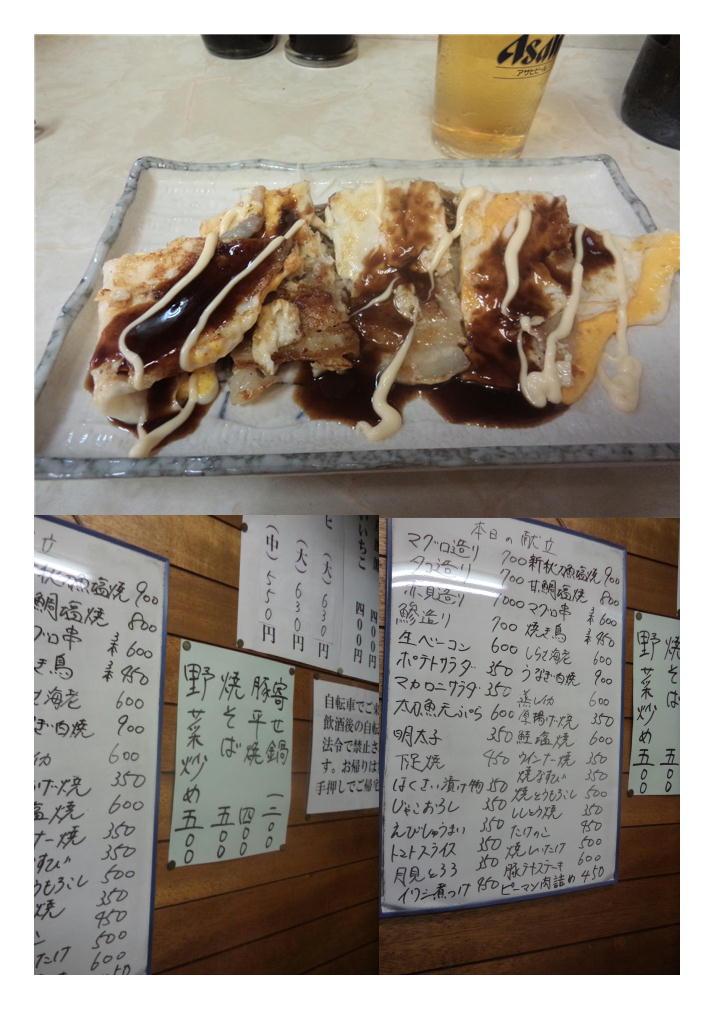 Asahi
アサヒビール
立
新秋刀魚塩焼 900
甘鯛塩焼 800
マグロ串 2本 600
焼き鳥 2本 450
しらさ海老 600
うなぎ白焼 900
蒸しイカ 600
厚揚げ焼 350
鮭塩焼 600
ウインナー焼 350
焼なすび 350
焼とうもろこし 500
ししとう焼 350
たけのこ 450
焼しいたけ 500
600
(大)六三〇円
(大)六三〇円
(中)五五〇円
四〇〇円
四〇〇円
寄せ鍋 一二〇〇
豚平焼 四〇〇
焼そば 五〇〇
野菜炒め 五〇〇
自転車でご来
飲酒後の自転
法令で禁止さ
す。お帰りは
手押しでご帰宅
本日の献立
マグロ造り 700
タコ造り 700
赤貝造り 1000
鯵造り 700
生ベーコン 600
ポテトサラダ 350
マカロニサラダ 350
太刀魚天ぷら 600
明太子 350
下足焼 450
はくさい漬け物 350
じゃこおろし 350
えびしゅうまい 350
トマトスライス 350
月見とろろ 350
イワシ煮つけ 450
新秋刀魚塩焼 900
甘鯛塩焼 800
マグロ串 2本 600
焼き鳥 2本 450
しらさ海老 600
うなぎ白焼 900
蒸しイカ 600
厚揚げ焼 350
鮭塩焼 600
ウインナー焼 350
焼なすび 350
焼とうもろこし 500
ししとう焼 350
たけのこ 450
焼しいたけ 500
豚テキステーキ 600
ピーマン肉詰め 450
焼そば 五〇〇
野菜炒め 五〇〇